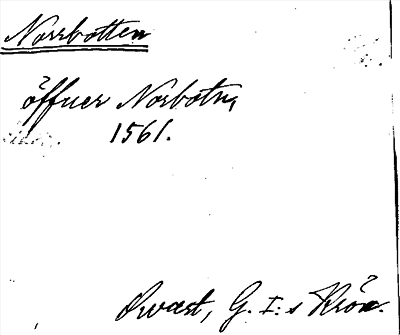 Norrbotten
öffuer Norbotn,
1561.
Svart, G. I:s Krön.